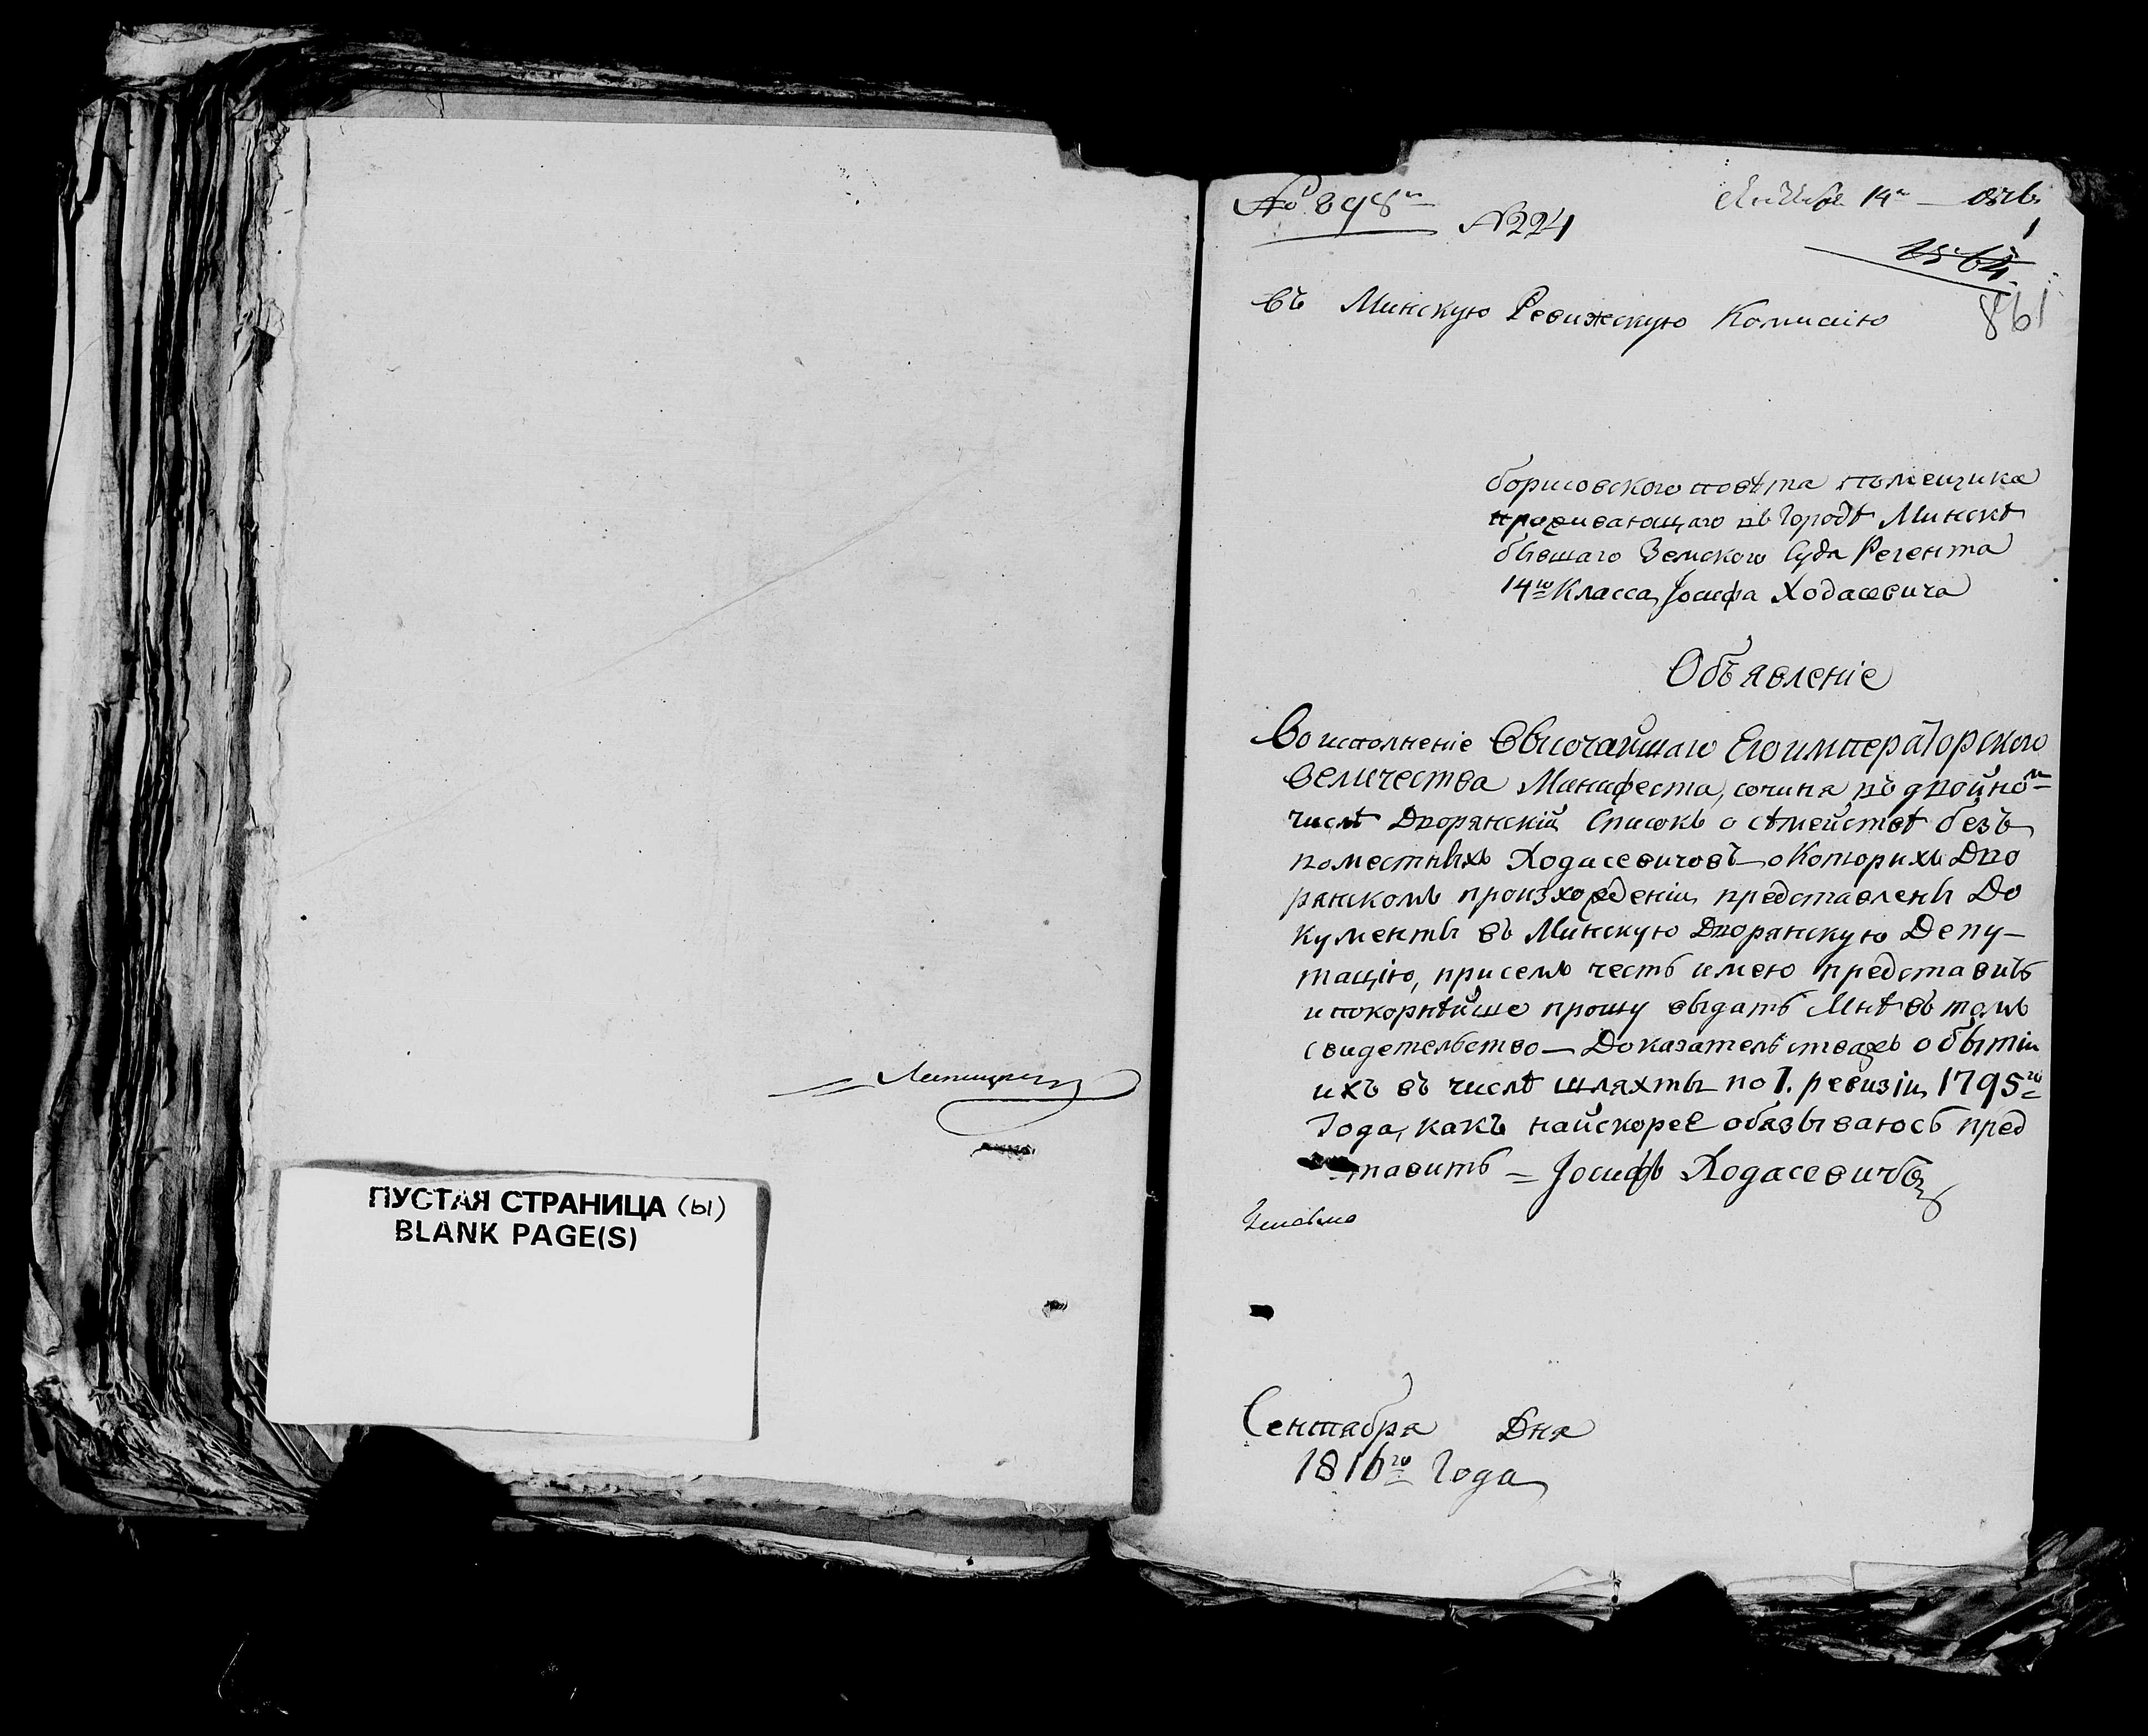 ПУСТАЯ СТРАНИЦА (ы)
BLANK PAGE(S)
№ 898
№ 224
14
861
въ Минскую Ревижскую Комисію
борисовского повѣта помещика
проживающаго въ Городѣ Минскѣ
бывшаго Земского Суда Регента
14го Класса Іосифа Ходасевича
Объявленіе
Во исполненіе Высочайшаго Его императорского
величества Манифеста, сочиня въ двойном
числѣ Дворянскій Списокъ о сѣмействѣ безъ
поместныхъ Ходасевичовъ о которихъ Дво
рянскомъ произхожденіи представлены До
кументы въ Минскую Дворянскую Депу-
тацію, присемъ честь имею представить
и покорнѣйше прошу выдать Мнѣ въ томъ
свидетельство — Доказательствахъ о бытіи
ихъ въ числѣ шляхты по 1. ревизіи 1795го
Года, какъ найскорее обязываюсь пред
ставить = Іосифъ Ходасевичъ
Сентабра Дня
1816го Года